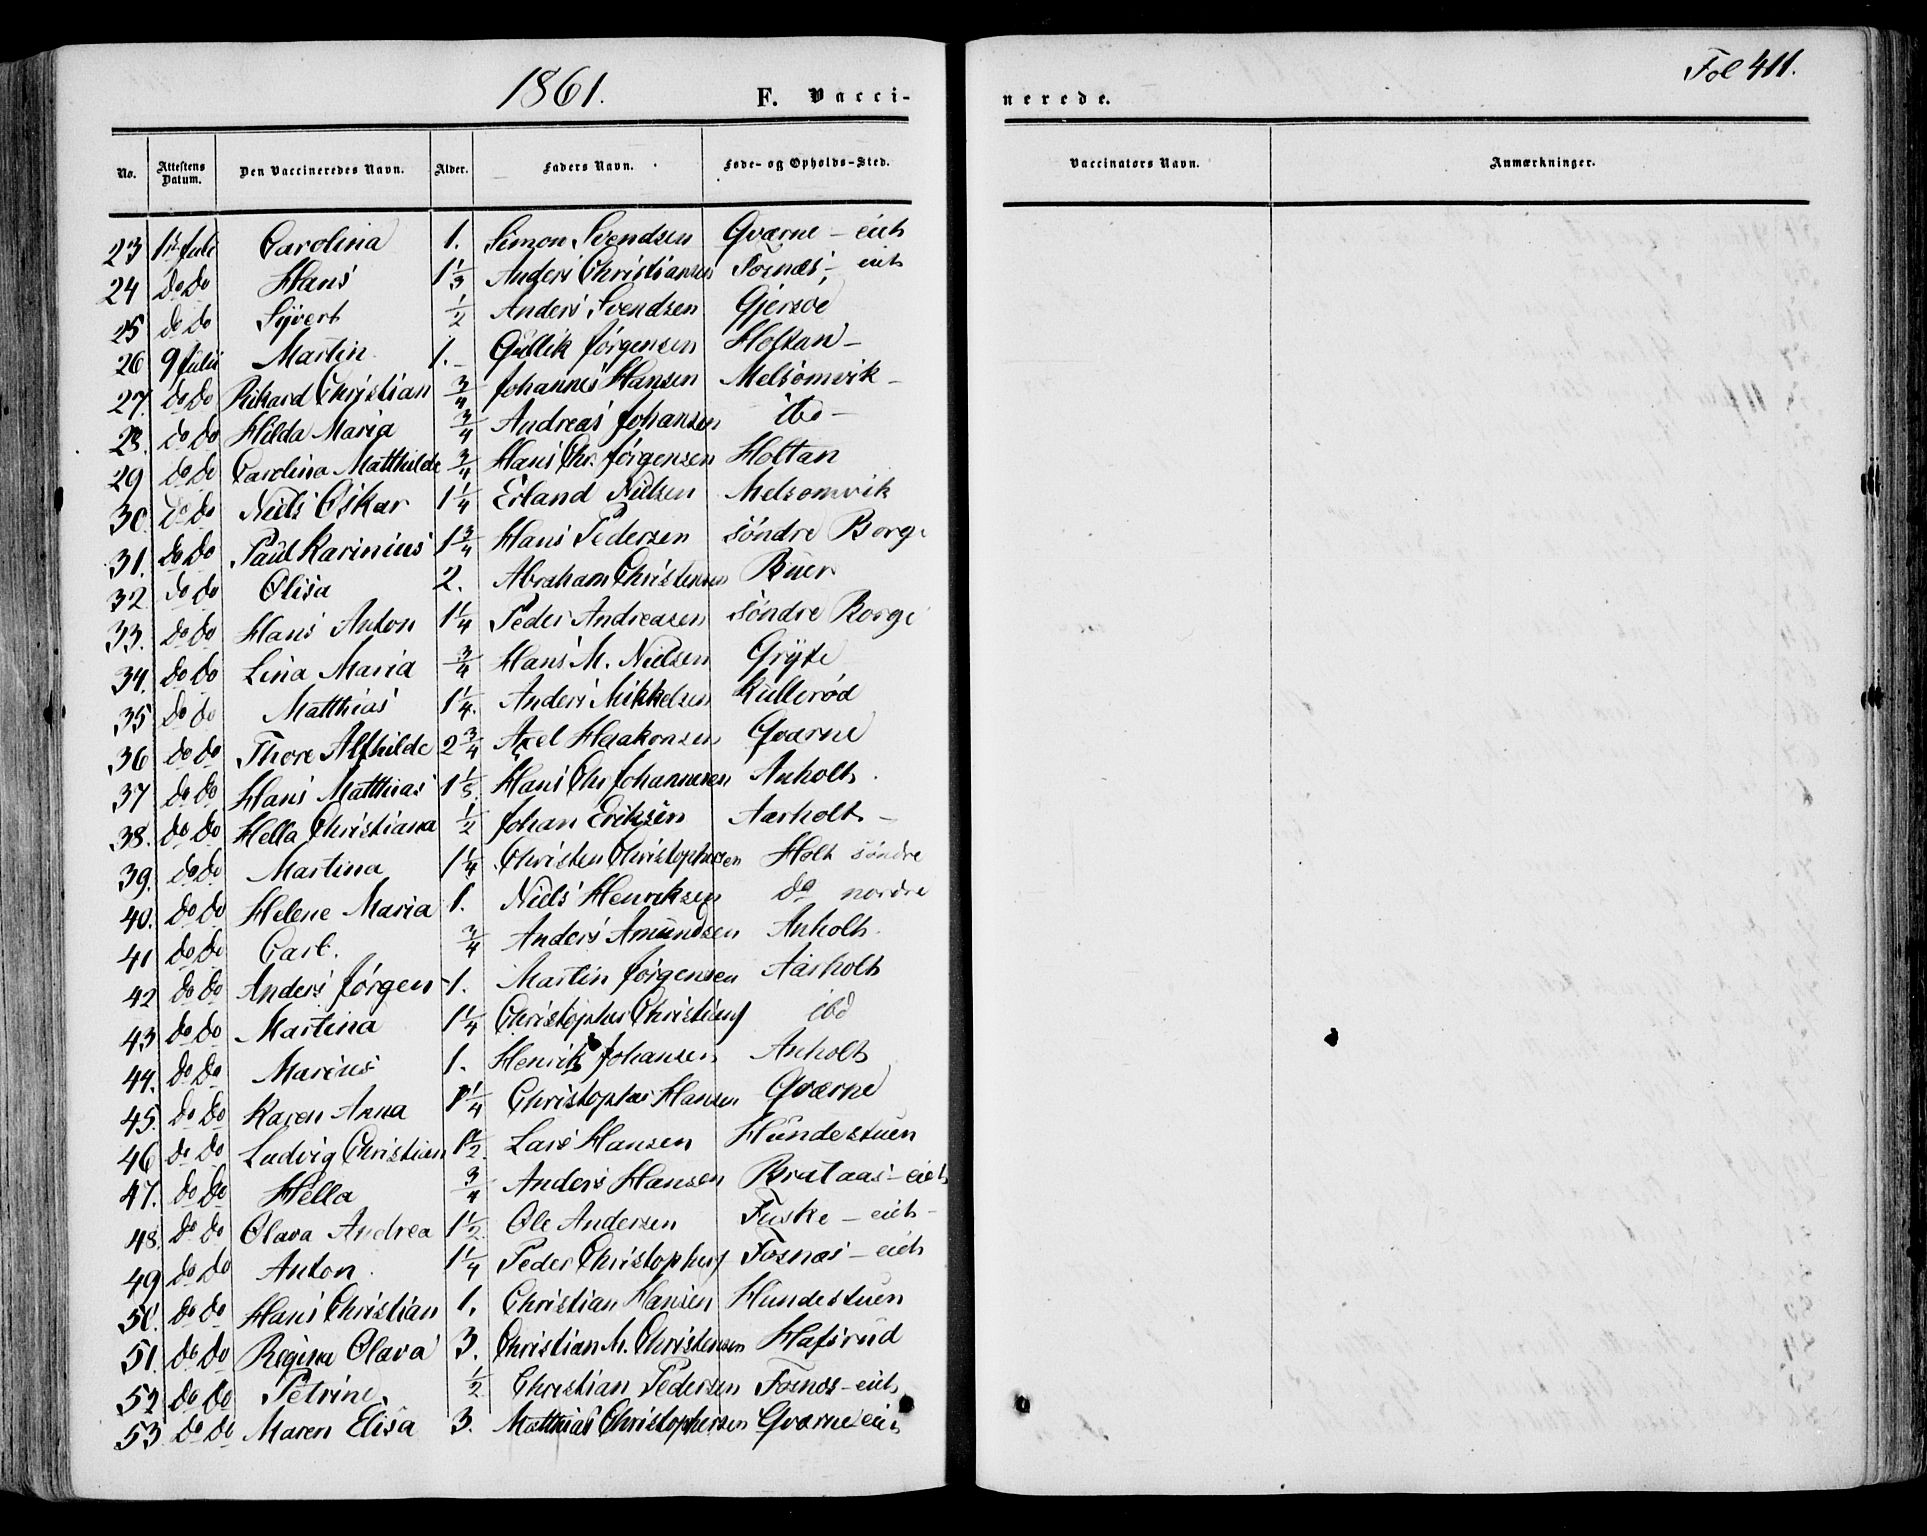 1861.
F. Vacci-
nerede.
Fol 411.
No. Attestens Datum. Den Vaccineredes Navn. Alder. Faders Navn. Føde- og Opholds-Sted. Vaccinators Navn. Anmærkninger.
23 1ste Juli Carolina 1. Simon Svendsen Qværne - eieh
24 do do Hans 1 1/3 Anders Christiansen Fosnæs - eieh
25 do do Syvert 1/2 Anders Svendsen Gjersøe
26 9 Julii Martin 1. Gullik Jørgensen Holtan -
27 do do Rikard Christian 3/4 Johannes Hansen Melsomvik -
28. do do Hilda Maria 3/4 Andreas Johansen ibd -
29 do do Carolina Matthilde 3/4 Hans Chr. Jørgensen Holtan
30. do do Niels Oskar 1 1/4 Erland Nielsen Melsomvik
31. do do Paul Karinius 1 3/4 Hans Pedersen søndre Borge
32 do do Olisa 2. Abraham Christensen Buer
33. do do Hans Anton 1 1/4 Peder Andreasen søndre Borge
34. do do Lina Maria 3/4 Hans M. Nielsen Gryte
35 do do Matthias 1 1/4. Anders Mikkelsen Kullerød
36 do do Thore Alfhilde 2 3/4 Axel Haakonsen Qværne
37 do do Hans Matthias 1 1/5. Hans Chr Johannesen Anholt.
38. do do Hella Christiana 1/2 Johan Eriksen Aarholt -
39. do do Martina 1 1/4 Christen Christophersen Holt søndre
40. do do Helene Maria 1. Niels Henriksen do nordre
41 do do Carl. 3/4 Anders Amundsen Anholt.
42 do do Anders Jørgen 1. Martin Jørgensen Aarholt
43 do do Martina 1 1/4 Christopher Christians ibd
44. do do Marius 1. Henrik Johansen Anholt
45. do do Karen Anna 1 1/4 Christopher Hansen Qværne
46 do do Ludvig Christian 1 1/2. Lars Hansen Hundestuen
47. do do Hella 3/4 Anders Hansen Brataas - eieh
48. do do Olava Andrea 1 1/2. Ole Andersen Fuske - eieh -
49 do do Anton. 1 1/4 Peder Christophers Fosnæs - eieh
50. do do Hans Christian 1. Christian Hansen Hundestuen
51. do do Regina Olava 3. Christian M. Christensen Hafsrud
52 do do Petrine 1/2 Christian Pedersen Fosnæs - eieh
53 do do Maren Elisa 3. Matthias Christophersen Qværne eieh